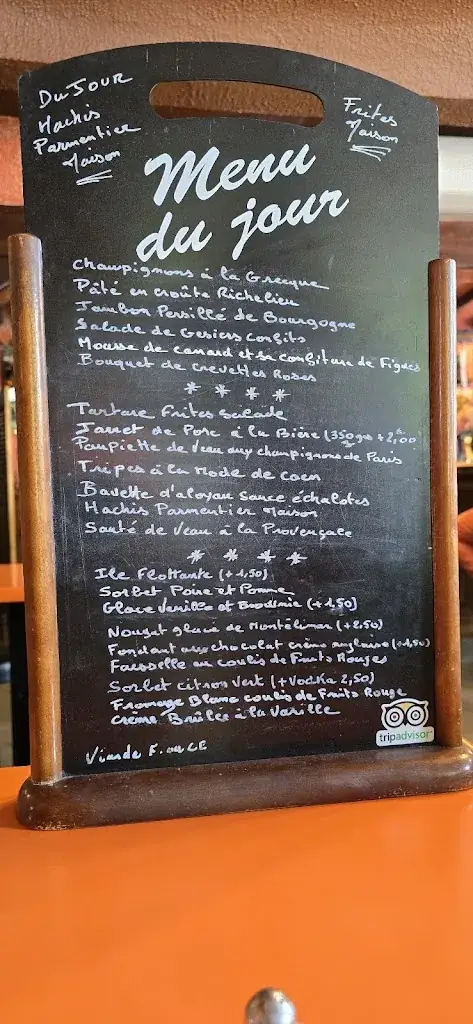 Du Jour
Hachis
Parmentier
Maison
Frites
Maison
Menu
du jour
champignons à la Grecque
Pâté en croûte Richelieu
Jambon Persillé de Bourgogne
Salade de Gesiers confits
Mousse de canard et sa confiture de Figues
Bouquet de crevettes Roses
* * * *
Tartare Frites salade
Jarret de Porc à la Bière (350grs + 2,00
Paupiette de Veau aux champignons de Paris
Tripes à la Mode de Caen
Bavette d'aloyau sauce échalotes
Hachis Parmentier Maison
Sauté de Veau à la Provençale
* * * *
Ile Flottante (+1,50)
Sorbet Poire et Pomme
Glace Vanille et (+1,50)
Nougat glacé de Montélimar (+2,50)
Fondant aux chocolat crème anglaise (+1,50)
Faisselle au coulis de Fruits Rouges
Sorbet citron vert (+Vodka 2,50)
Fromage Blanc coulis de Fruits Rouge
crème Brûlée à la Vanille
Viande E. ou CE
tripadvisor